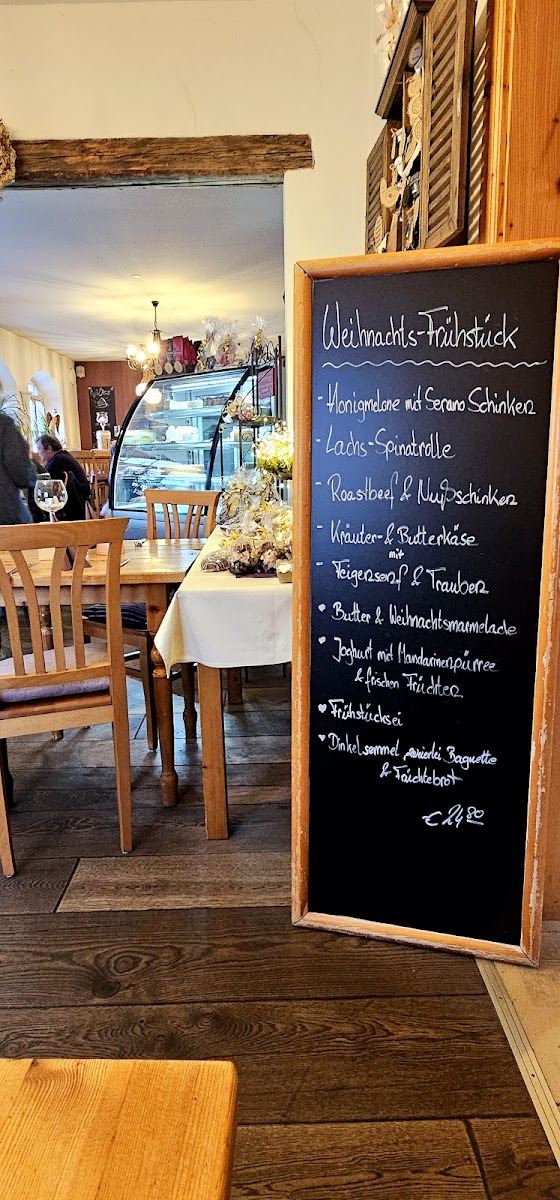 Weihnachts-Frühstück
- Honigmelone mit Serano Schinken
- Lachs-Spinatrolle
- Roastbeef & Nußschinken
- Kräuter- & Butterkäse
mit
- Feigensenf & Trauben
• Butter & Weihnachtsmarmelade
• Joghurt mit Mandarinenpürree
& frischen Früchten
♥ Frühstücksei
♥ Dinkelsemmel, Baguette
& Früchtebrot
€ 24,80